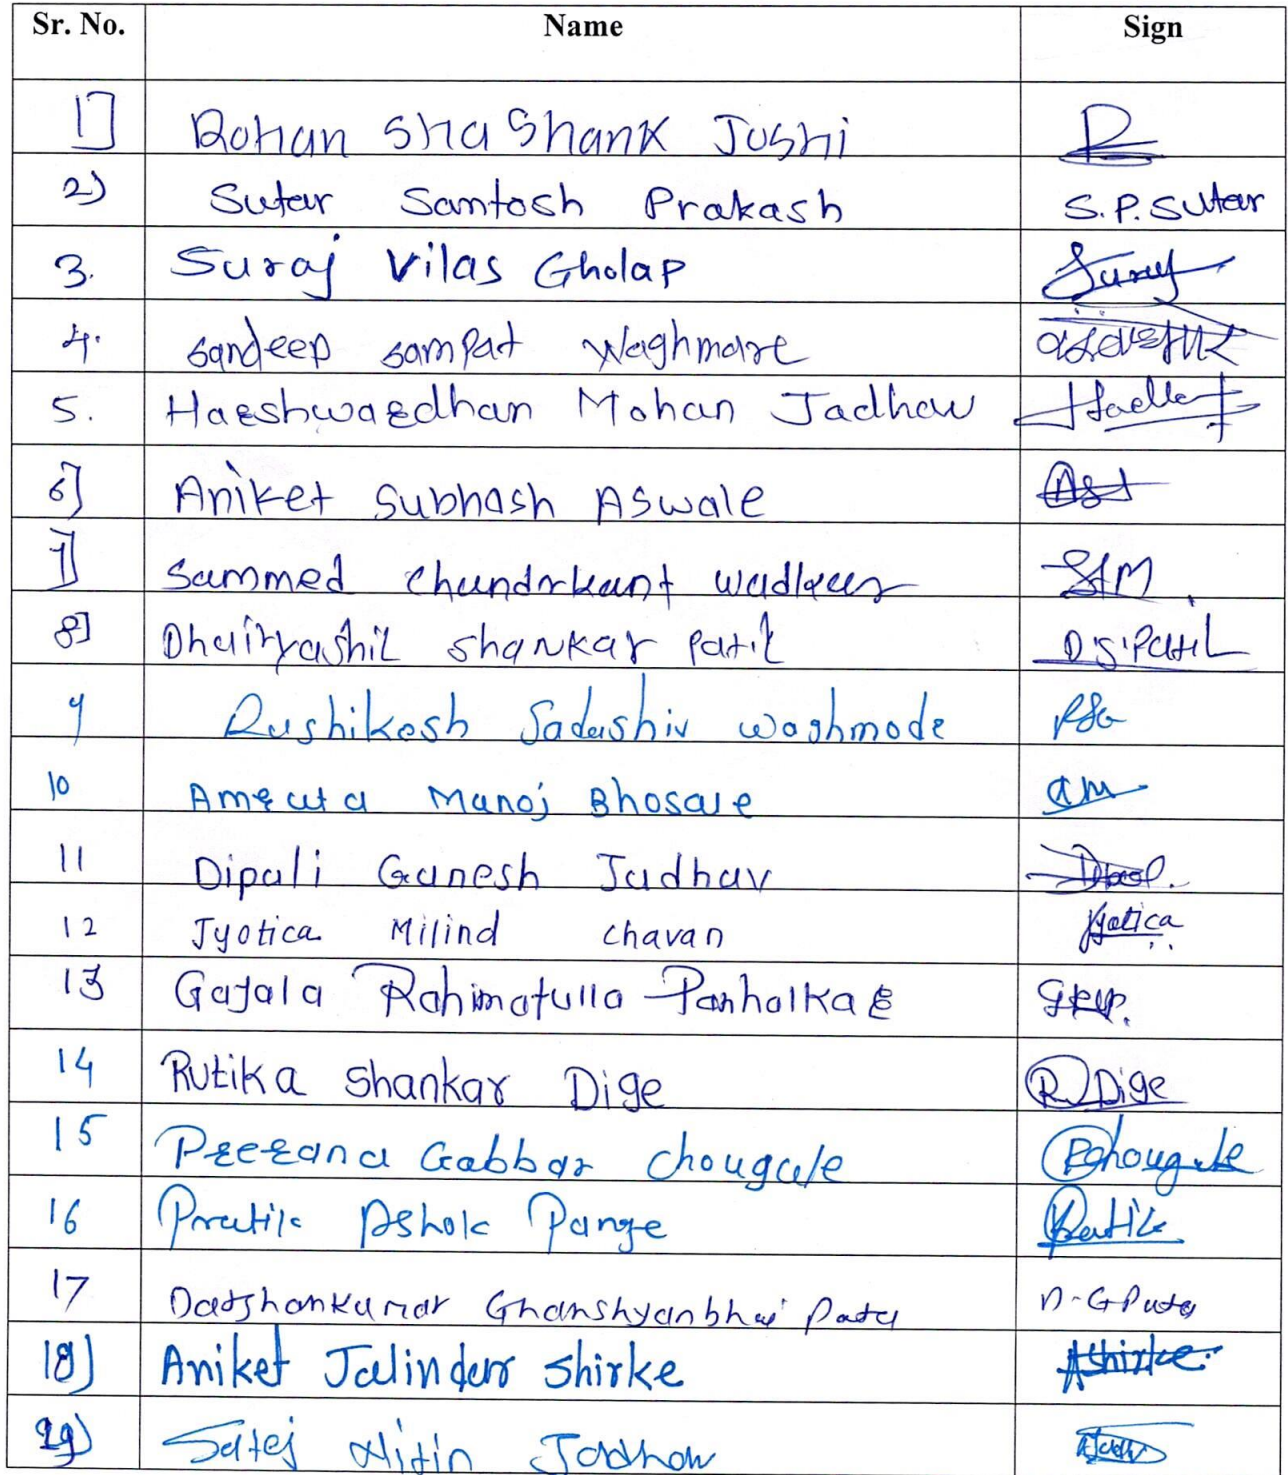 Sr. No. Name Sign
1] Rohan Shashank Joshi R
2) Sutar Santosh Prakash S.P. Sutar
3. Suraj Vilas Gholap Suraj
4. Sandeep Sampat Waghmare
5. Harshwardhan Mohan Jadhav
6] Aniket Subhash Aswale
7] Sammed Chandrkant Wadkar
8] Dhairyashil Shankar Patil D.S. Patil
9 Rushikesh Sadashiv Waghmode
10 Amruta Manoj Bhosale AM
11 Dipali Ganesh Jadhav
12 Jyotica Milind Chavan Jyotica
13 Gajala Rahimatulla Panhalkar
14 Rutika Shankar Dige R Dige
15 Prerana Gabbar Chougule PChougule
16 Pratik Ashok Pange Pratik
17 Ghanshyanbhai
18) Aniket Jalindar Shirke AShirke
Satej Nitin Jadhav